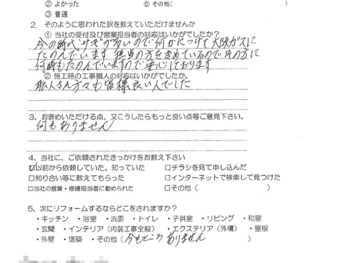 ② よかった ⑤ その他(
③ 普通
2. そのように思われた訳を教えていただけますか
① 当社の受付及び営業担当者の対応はいかがでしたか?
今の時代 サギが多いので何かにつけて大阪ガスに
たのんでいます 担当の方を含めているのでその方に
何時もたのんでいますので安心しております
② 施工時の工事職人の対応はいかがでしたか?
職人さん方々も皆様良い人でした
3. お褒めいただける点、又こうしたらもっと良い点等ご意見下さい。
何もありません
4. 当社に、ご依頼されたきっかけをお教え下さい
以前から依頼していた。知っていた □チラシを見て申し込んだ
□知り合い等に教えてもらった □インターネットで検索して見つけた
□当社の営業・修理担当者に勧められた □その他(
5. 次にリフォームするならどこをされますか?
・キッチン ・浴室 ・洗面 ・トイレ ・子供室 ・リビング ・和室
・玄関 ・インテリア(内装工事全般) ・エクステリア(外構) ・屋根
・外壁 ・増築 ・その他(今もどこもありません